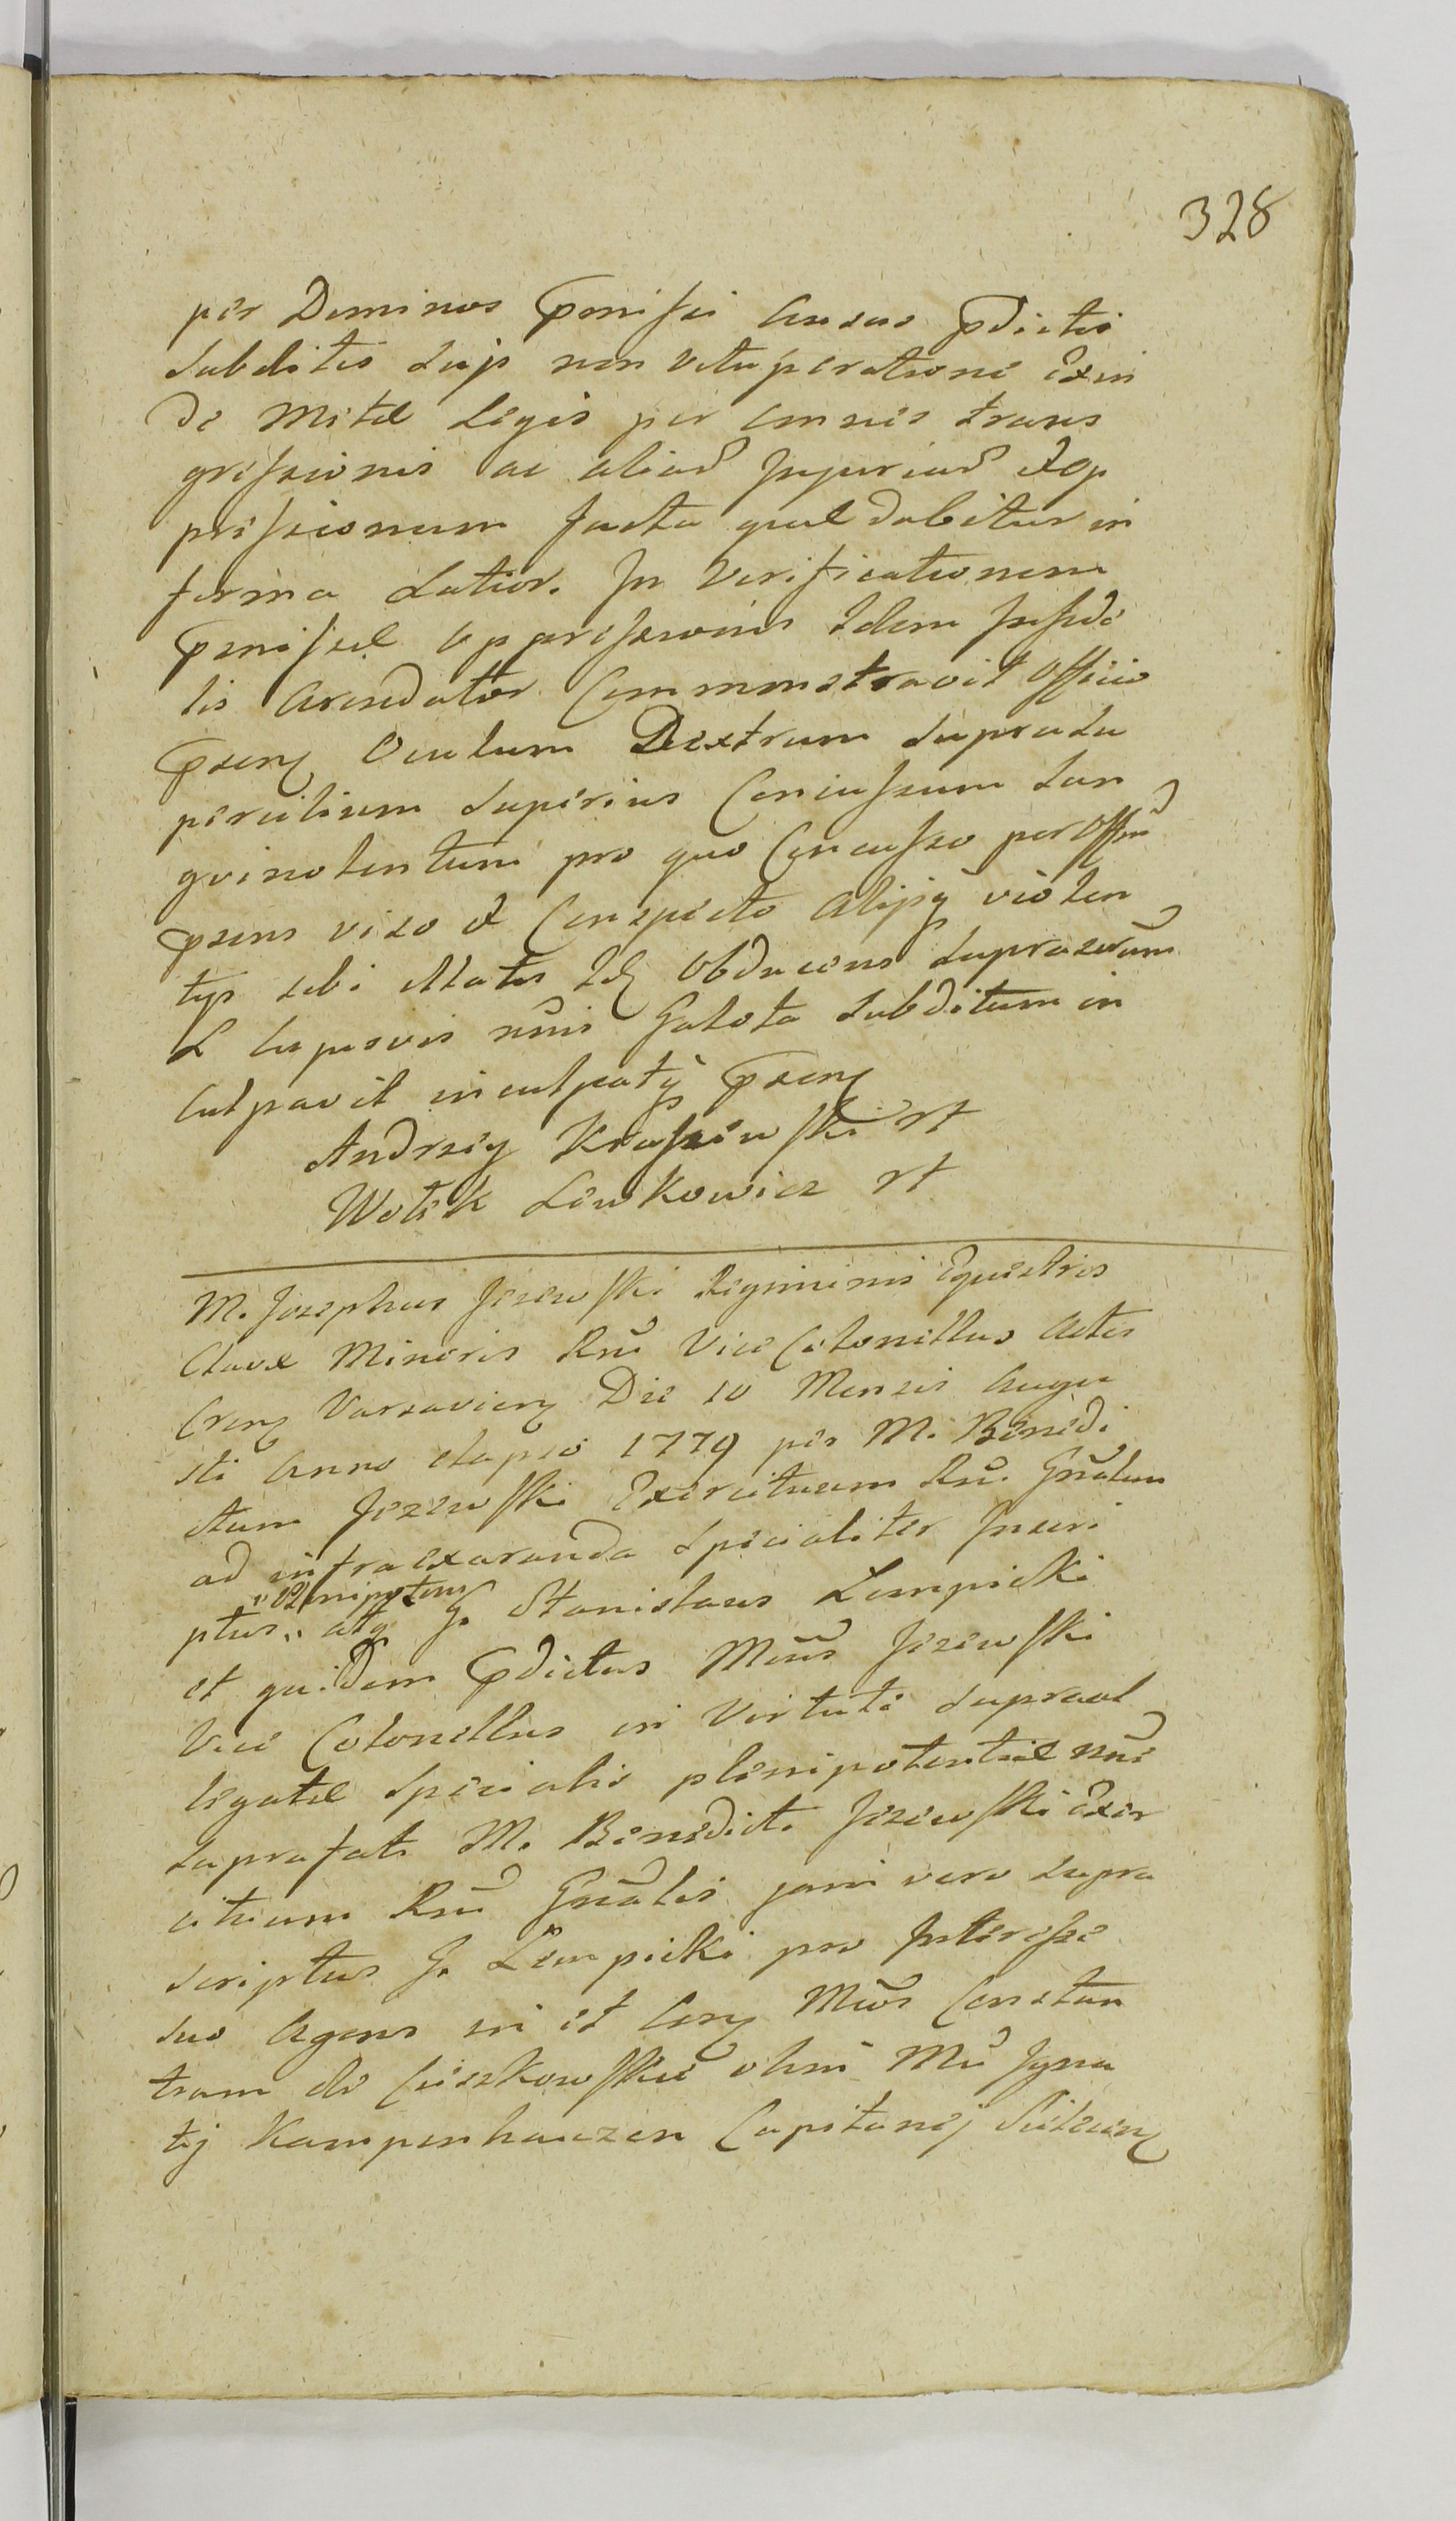 328
per Dominos pmissi Ausus pdictis
Subditis Sup non vituperatione Exin
de Mitae Legis per omnes trans
gressionis ac aliar̃ Injuriar̃ et op
pressionum facta quae dabitur in
forma Latior. In Verificationem
pmissae oppressionis Idem Infide
lis Arendator Commonstravit Officio
psen Oculum Dextrum supra Su
percilium Superius Concussum San
gvinolentum pro quo Concusso per Offm̃
psens viso et Conspecto Alijsq violen
tijs sibi illatis Id Obducens suprascrum̃
L Cupisvis nm̃is Gatota Subditum in
Culpavit inculpatq psen
Andrzey Kraszewski rt
Wolek Lewkowicz rt
M. Josephus Jezewski Regiminis Equestris
Clavae Minoris Rni Vice Colonellus Actis
Cren Varsavien Die 10 Mensis Augu
sti Anno elapso 1779 per M. Benedi
ctum Jezewski Exercituum Rni Gnalem
ad infra exaranda Specialiter Inscri
ptus " Plenipotens " atq G. Stanislaus Lempicki
et quidem pdictus Mcus Jezewski
Vice Colonellus in Virtute Supraal
legatae Specialis plenipotentiae nm̃e
Suprafati M. Benedicti Jezewski Exer
cituum Rni Gnalis jam vero Supra
scriptus G. Lempicki pro Interesse
suo Agens in et Con Mcos Constan
tiam de Cieszkowskie olim Mci Igna
tij Kampenhauzen Capitanej Sielecen